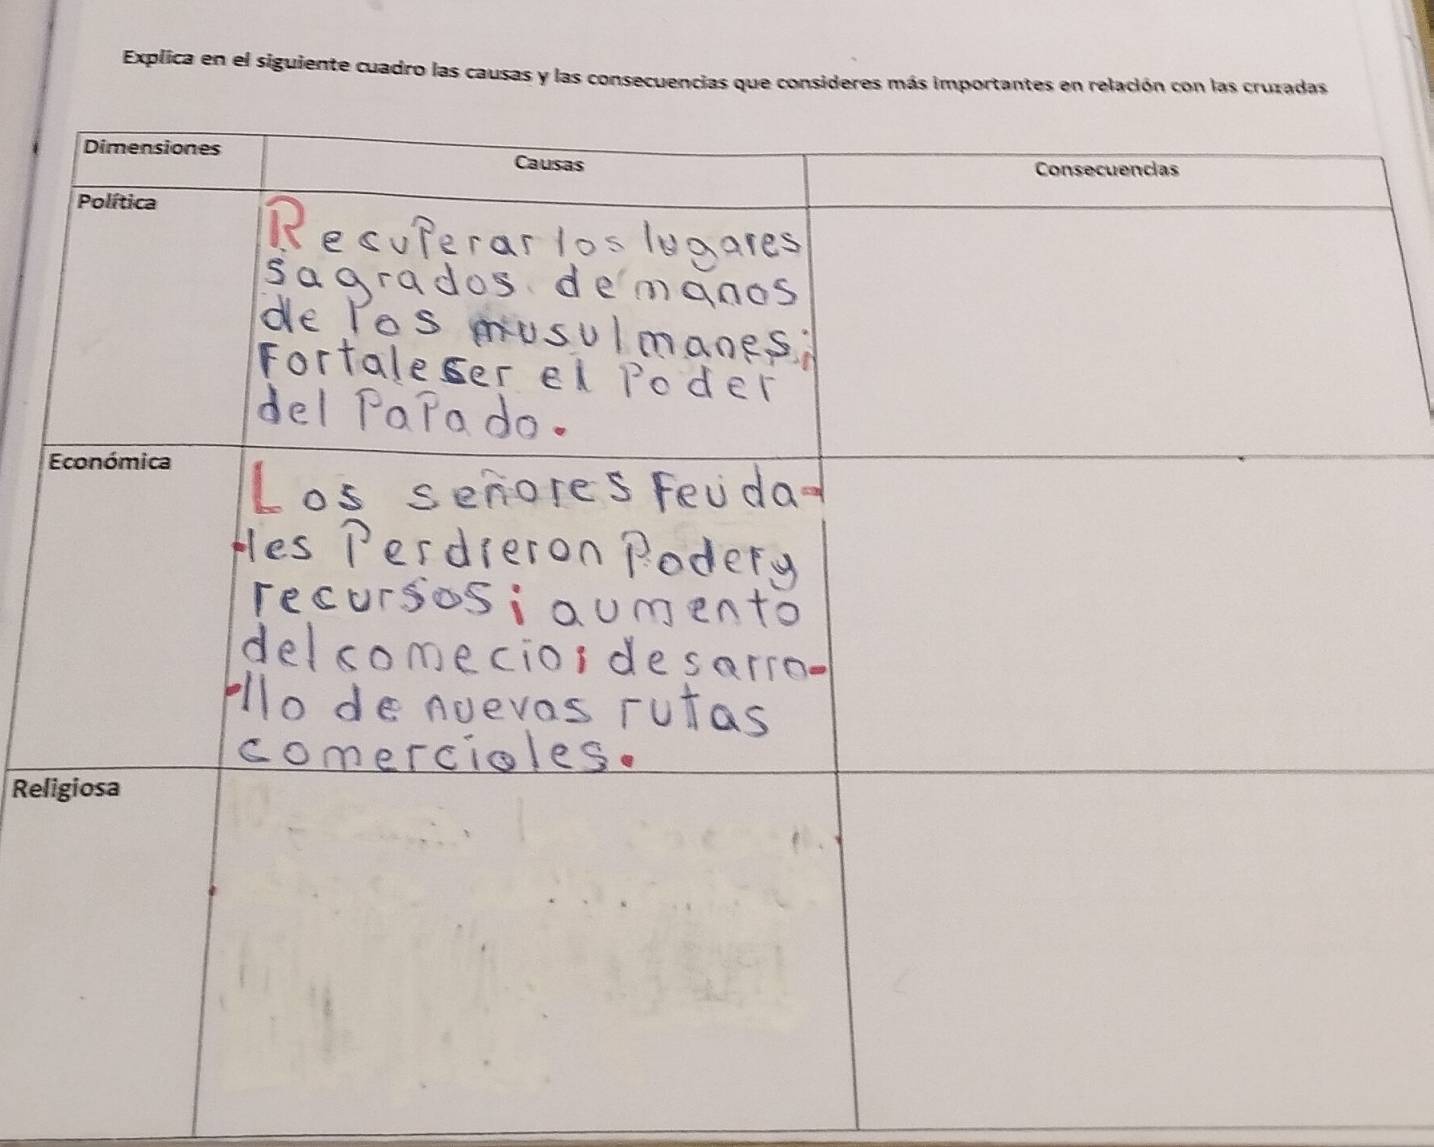 Explica en el siguiente cuadro las causas y las consecuencias que consideres más importantes en relación con las cruzadas
Dimensiones
Causas
Consecuencias
Política
Recuperar los lugares
sagrados de manos
de los musulmanes;
Fortaleser el Poder
del Papado.
Económica
Los señores Feuda-
-les Perdieron Poder y
recursos; aumento
del comecio; desarro-
-llo de nuevas rutas
comerciales.
Religiosa